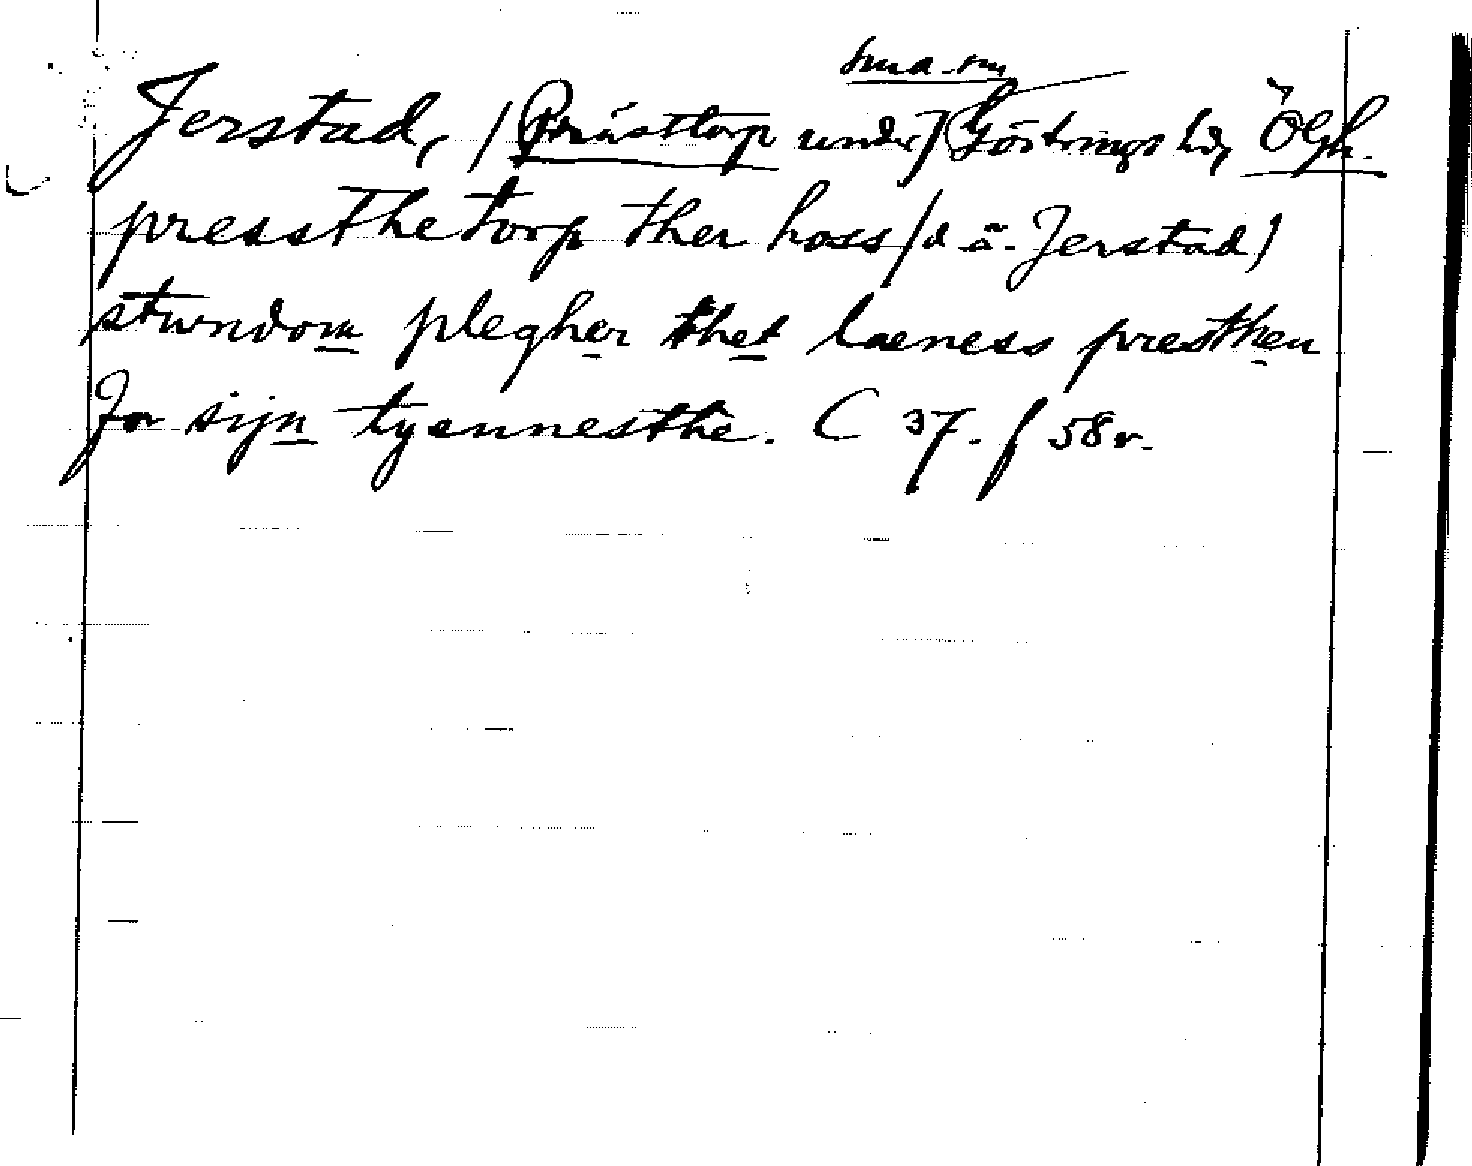 Jerstad, (Prästtorp under) Göstrings hd, Ögh.
pressthetorp ther hoss (d. ä. Jerstad)
stundom plegher thet laeness presthen
For sijn tyennesthe. C 37. f 58v.